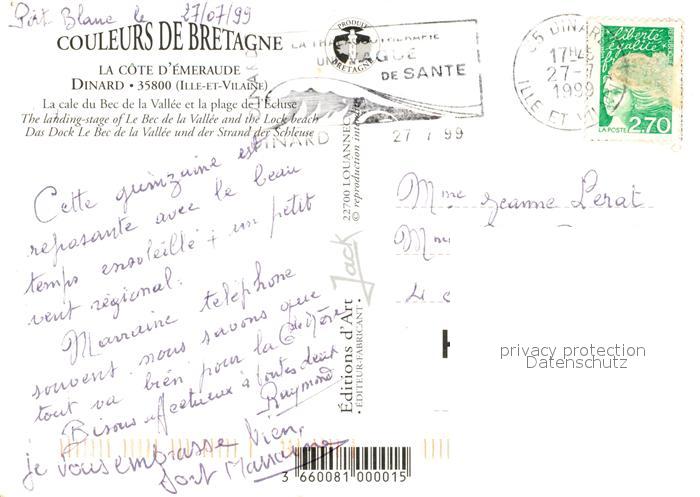 Port Blanc le 27/07/99
COULEURS DE BRETAGNE
LA CÔTE D'ÉMERAUDE
DINARD • 35800 (ILLE-ET-VILAINE)
La cale du Bec de la Vallée et la plage de l'Écluse
The landing-stage of Le Bec de la Vallée and the Lock beach
Das Dock Le Bec de la Vallée und der Strand der Schleuse
PRODUIT
BRETAGNE
VAGUE
DE SANTE
DINARD 27 7 99
35 DINARD
17H45
27-7
1999
ILLE ET VILAINE
liberté
égalité
LA POSTE 2,70
Cette quinzaine est
reposante avec le beau
temps ensoleillé + un petit
vent régional.
Marraine téléphone
souvent. nous savons que
tout va bien pour la
Bisous affectueux à toutes deux
Raymond
je vous embrasse bien,
Marraine
22700 LOUANNEC
© reproduction interdite
Jack
Éditions d'Art
• ÉDITEUR-FABRICANT •
Mme Jeanne Lerat
privacy protection
Datenschutz
3 660081 000015